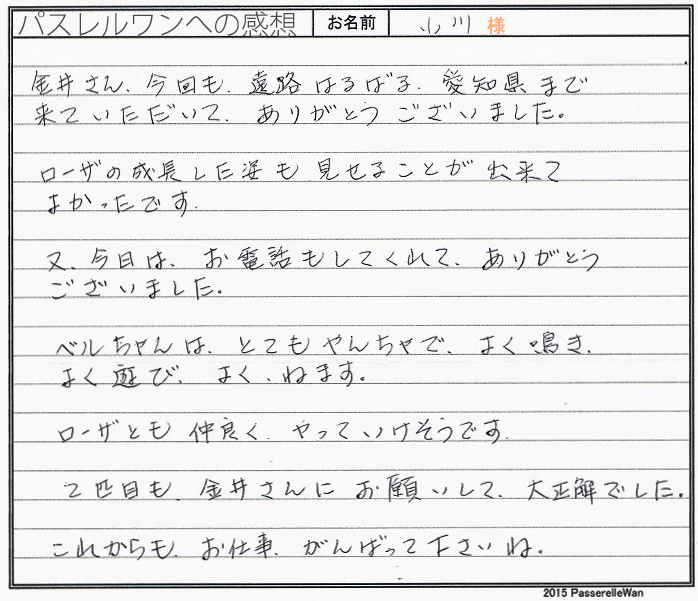 パスレルワンへの感想 お名前 小川 様
金井さん、今回も、遠路はるばる、愛知県まで
来ていただいて、ありがとうございました。
ローザの成長した姿も見せることが出来て
よかったです。
又、今日は、お電話もしてくれて、ありがとう
ございました。
ベルちゃんは、とてもやんちゃで、よく鳴き、
よく遊び、よく、ねます。
ローザとも仲良く、やっていけそうです。
2匹目も、金井さんにお願いして、大正解でした。
これからも、お仕事、がんばって下さいね。
2015 PasserelleWan